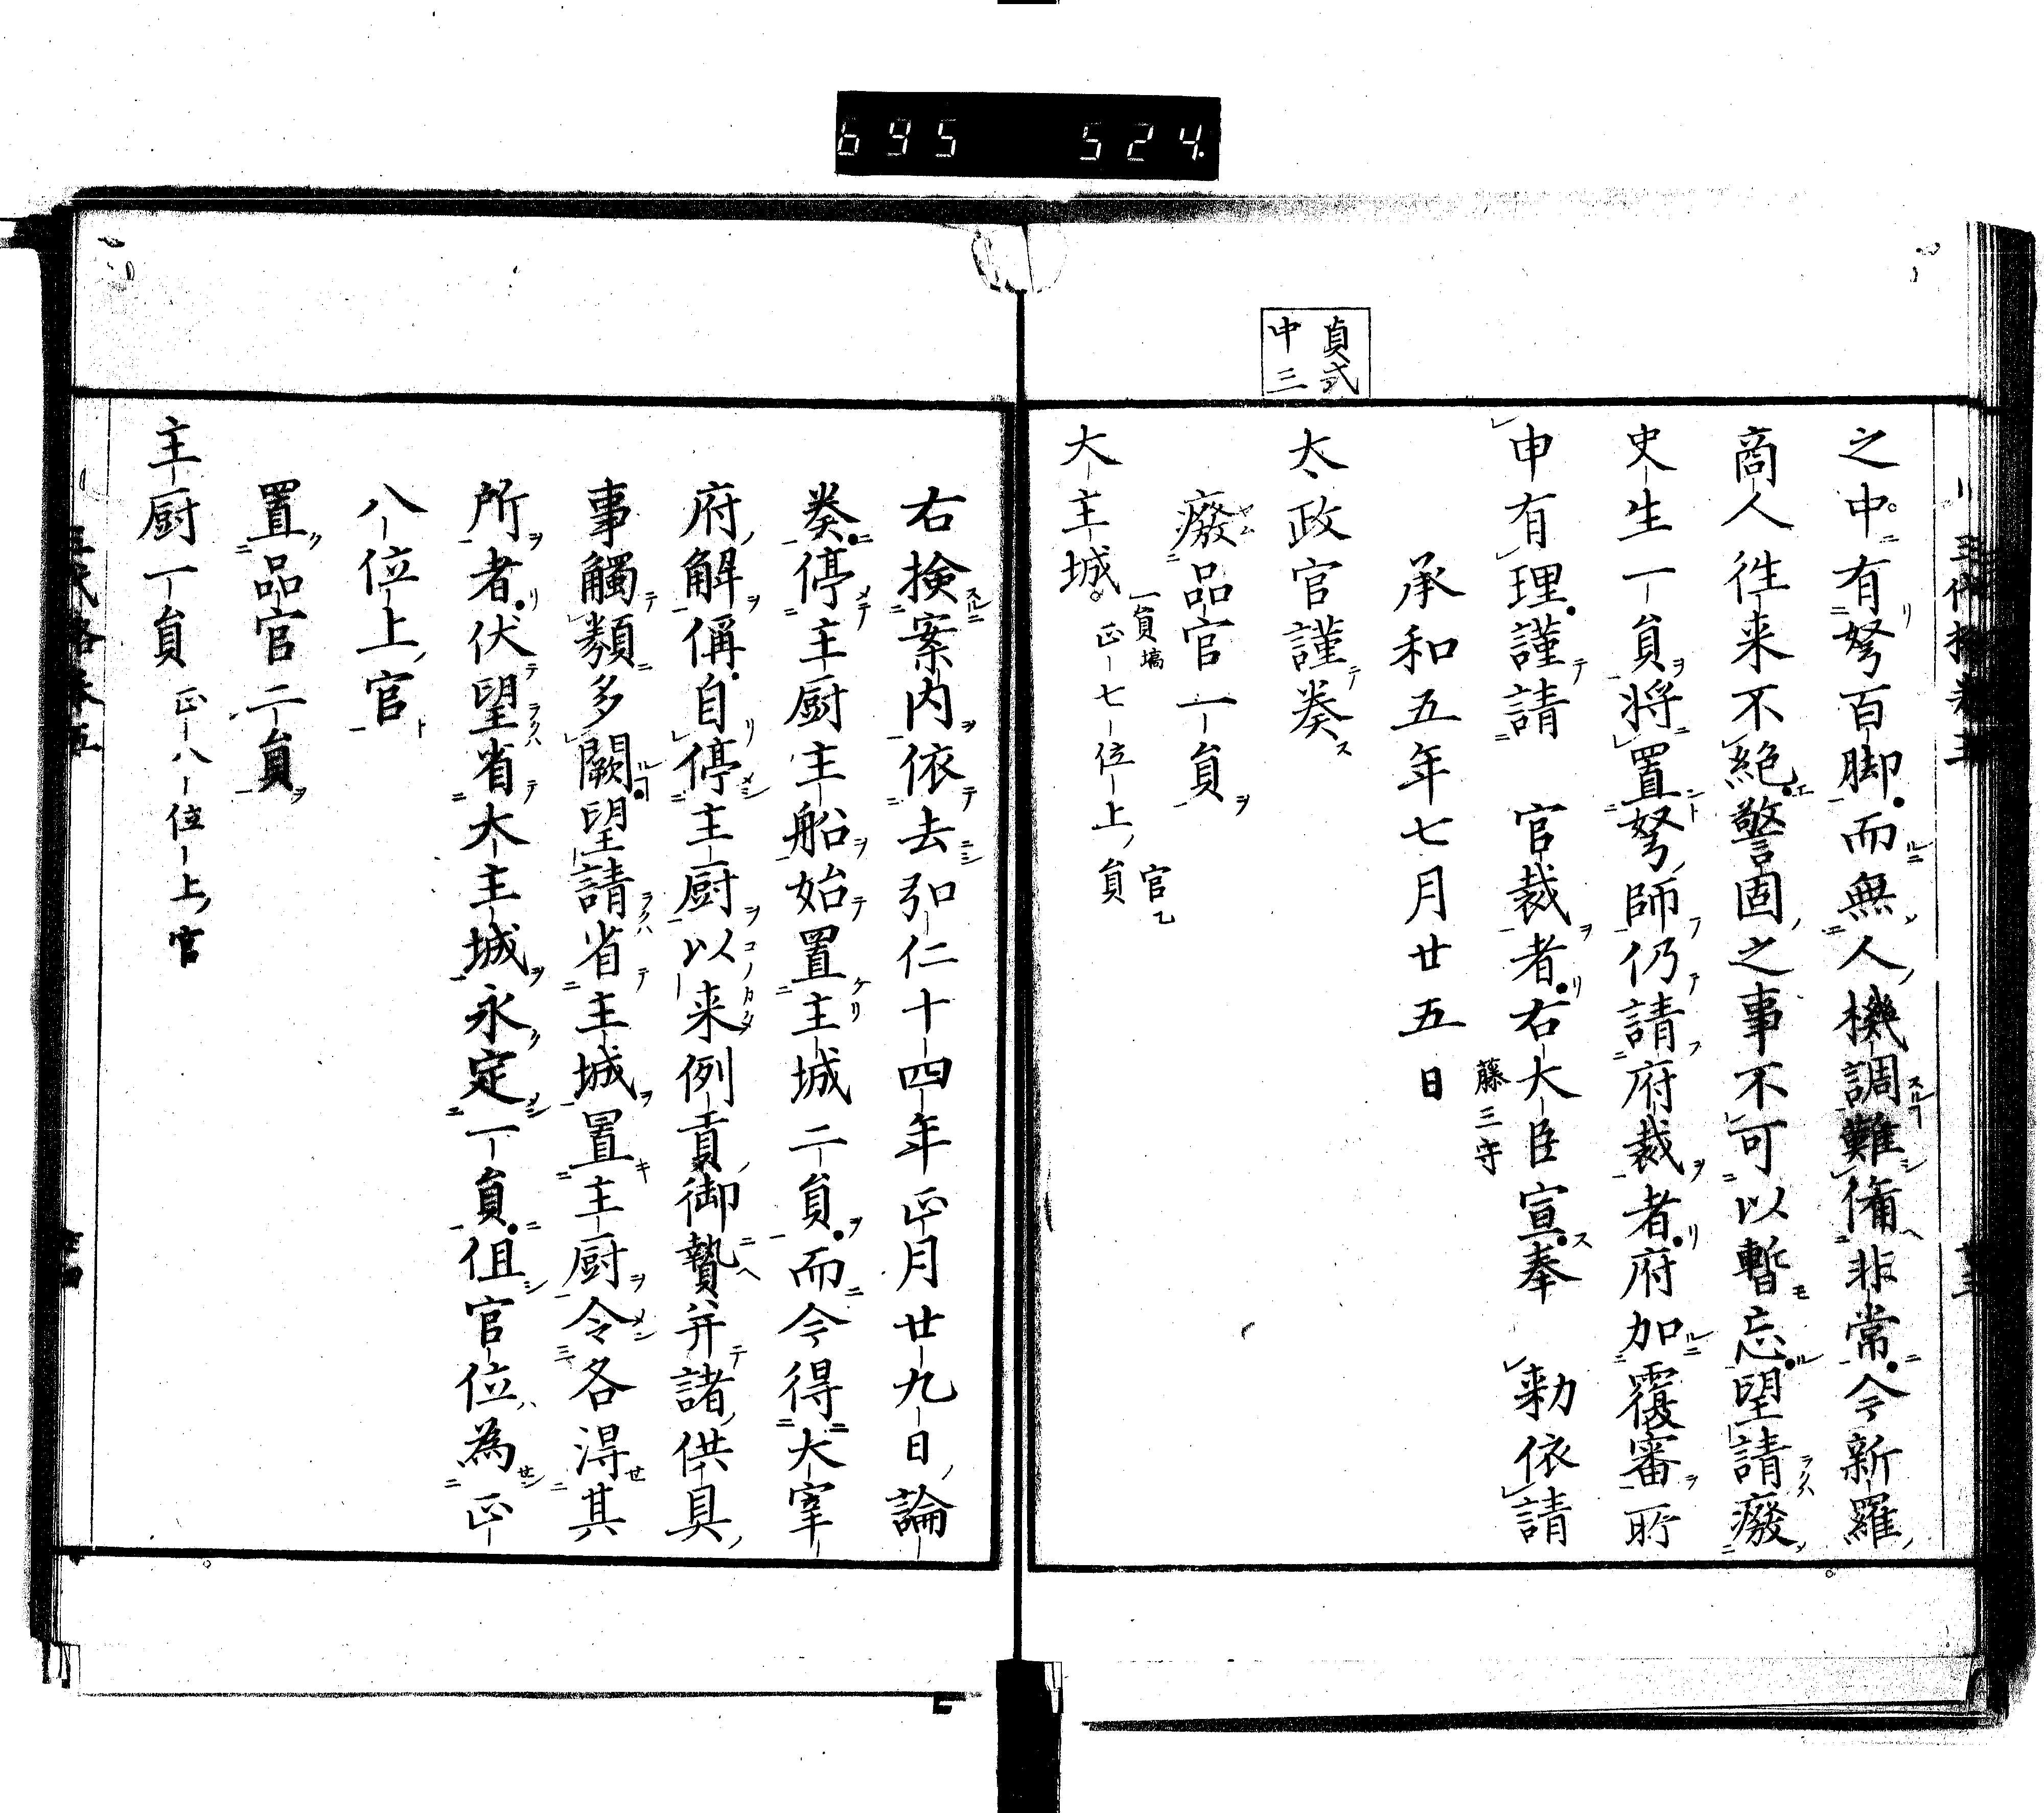 695 524
貞式
中三
之中有弩百脚而無人機調難備非常今新羅
商人徃来不絶警固之事不可以暫忘望請癈
史生一員将置弩師仍請府裁者府加覆審所
申有理謹請 官裁者右大臣宣奉 勅依請
藤三守
承和五年七月廿五日
太政官謹奏
癈品官一員
大主城 一員 正七位上 官
右検案内依去弘仁十四年正月廿九日論
奏停主厨主船始置主城二員而今得大宰
府解偁自停主厨以来例貢御贄并諸供具
事觸類多闕望請省主城置主厨令各得其
所者伏望省大主城永定一員但官位為正
八位上官
置品官二員
主厨一員 正八位上官